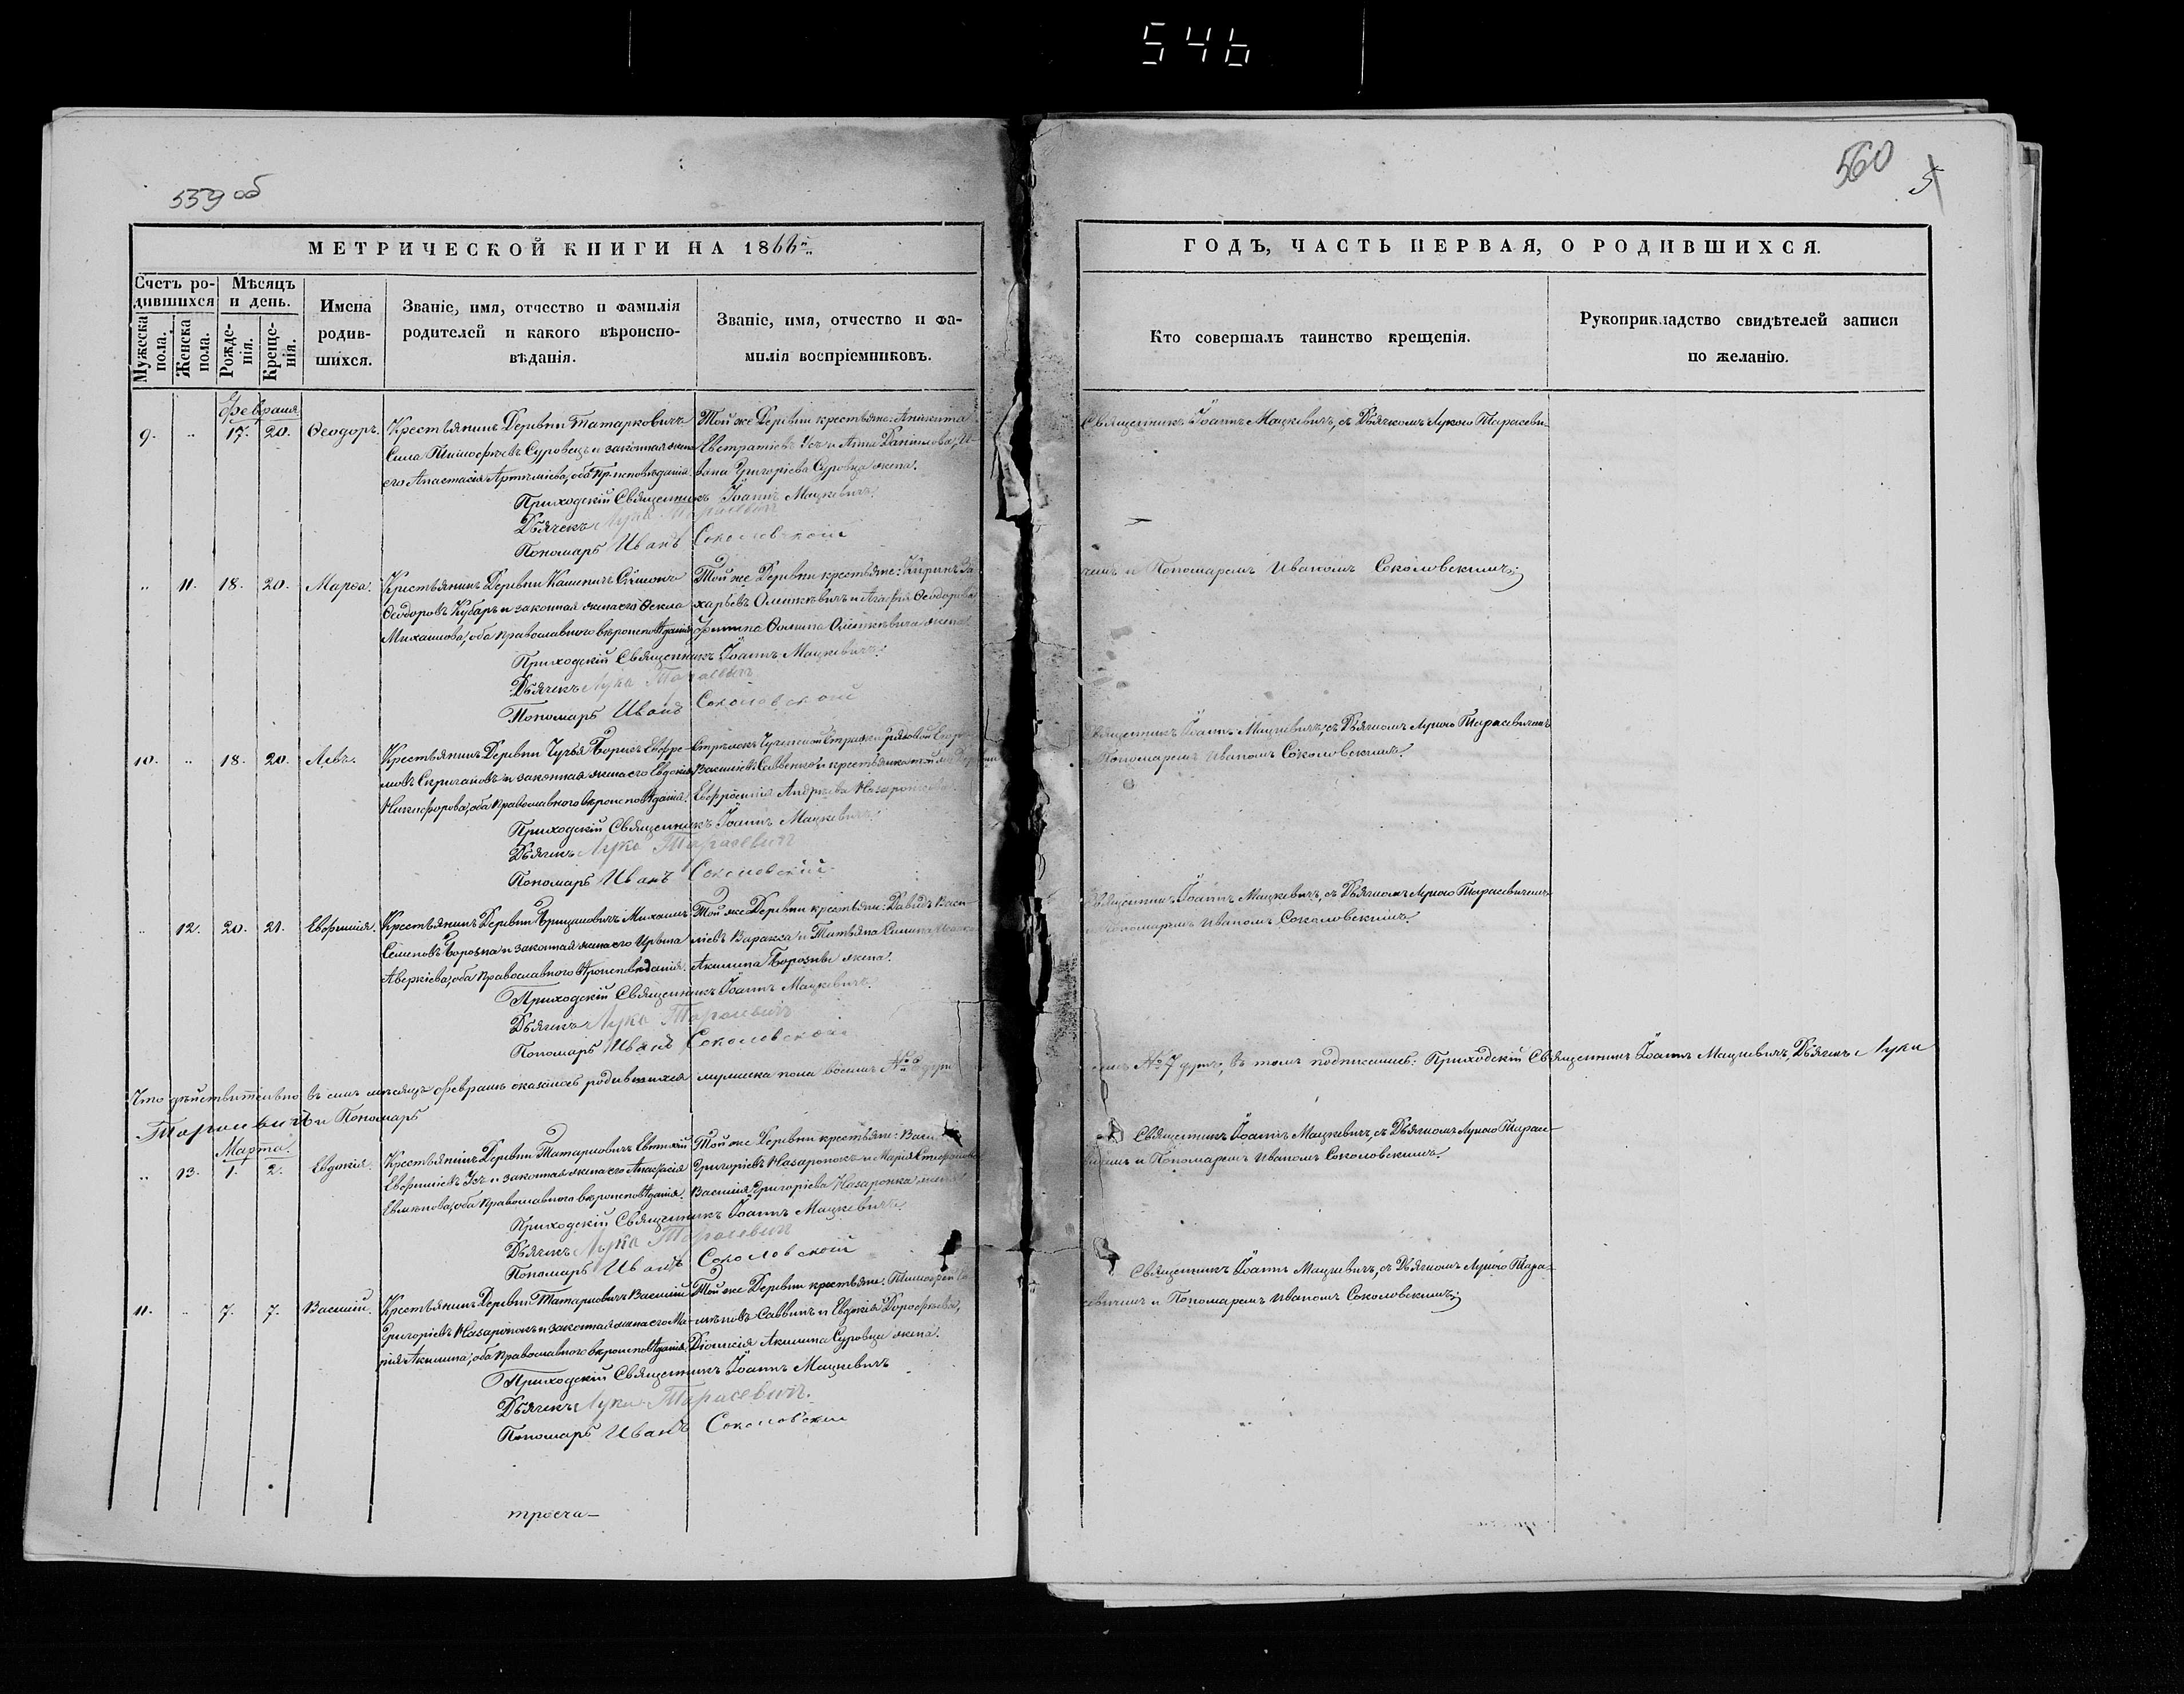 546
559 об
560
5
МЕТРИЧЕСКОЙ КНИГИ НА 1866й
ГОДЪ, ЧАСТЬ ПЕРВАЯ, О РОДИВШИХСЯ.
Счетъ родившихся
Мужеска пола.
Женска пола.
Мѣсяцъ и день.
Рожденія.
Крещенія.
Имена родившихся.
Званіе, имя, отчество и фамилія родителей и какого вѣроисповѣданія.
Званіе, имя, отчество и фамилія воспріемниковъ.
Кто совершалъ таинство крещенія.
Рукоприкладство свидѣтелей записи по желанію.
Февраля
9. " 17. 20. Ѳеодоръ.
Крестьянинъ Деревни Татарковичъ
Сила Тимофѣевъ Суровецъ и законная жена
его Анастасія Артеміева, оба Пр. исповѣданія.
Той же Деревни крестьяне: Аникита
Евстратіевъ Усъ и Анна Даніилова, И-
вана Григоріева Суровца жена.
Священникъ Іоаннъ Мацкевичъ, съ Дьячкомъ Лукою Тарасеви-
чемъ и Пономаремъ Иваномъ Соколовскимъ;
Приходскій Священникъ Іоаннъ Мацкевичъ.
Дьячекъ Лука Тарасевичъ
Пономарь Иванъ Соколовскій
" 11. 18. 20. Марѳа.
Крестьянинъ Деревни Каменичъ Симонъ
Ѳеодоровъ Кубаръ и законная жена его Ѳекла
Михаилова, оба православного вѣроисповѣданія.
Той же Деревни крестьяне: Киринъ За-
харьевъ и Агафія Ѳеодорова
Филиппа Ѳомина жена.
Приходскій Священникъ Іоаннъ Мацкевичъ.
Дьячекъ Лука Тарасевичъ
Пономарь Иванъ Соколовскій
10. " 18. 20. Левъ.
Крестьянинъ Деревни Чучья Борисъ Ефре-
мовъ Скригановъ и законная жена его Евдокія
Никифорова, оба православного вѣроисповѣданія.
Стрѣлокъ Чученской Стражи рядовой
Василіевъ Савенко и крестьянка той же Деревни
Евфросинія Андреева
Священникъ Іоаннъ Мацкевичъ, съ Дьячкомъ Лукою Тарасевичемъ
и Пономаремъ Иваномъ Соколовскимъ.
Приходскій Священникъ Іоаннъ Мацкевичъ.
Дьячекъ Лука Тарасевичъ
Пономарь Иванъ Соколовскій
" 12. 20. 21. Евфимія.
Крестьянинъ Деревни Михаилъ
Семеновъ Борозна и законная жена его Ирина
Аверкіева, оба православного вѣроисповѣданія.
Той же Деревни крестьяне: Давидъ Васи-
ліевъ Варакса и Татьяна
Акилина Борозны жена.
Священникъ Іоаннъ Мацкевичъ, съ Дьячкомъ Лукою Тарасевичемъ
и Пономаремъ Иваномъ Соколовскимъ.
Приходскій Священникъ Іоаннъ Мацкевичъ.
Дьячекъ Лука Тарасевичъ
Пономарь Иванъ Соколовскій
Что дѣйствительно въ семъ мѣсяцѣ Февралѣ оказалось родившихся мужеска пола восемь № 8
№ 7 душъ, въ томъ подписались: Приходскій Священникъ Іоаннъ Мацкевичъ, Дьячекъ Лука
Тарасевичъ и Пономарь
Марта.
" 13. 1. 2. Евдокія.
Крестьянинъ Деревни Татарковичъ Евтихій
Евфиміевъ Усъ и законная жена его Анастасія
оба православного вѣроисповѣданія.
Той же Деревни крестьяне:
Григоріевъ Назаронокъ и Марія Стефанова
Василія Григоріева Назаронка жена
Священникъ Іоаннъ Мацкевичъ, съ Дьячкомъ Лукою Тарасе-
вичемъ и Пономаремъ Иваномъ Соколовскимъ.
Приходскій Священникъ Іоаннъ Мацкевичъ,
Дьячекъ Лука Тарасевичъ
Пономарь Иванъ Соколовскій
11. " 7. 7. Василій.
Крестьянинъ Деревни Татарковичъ Василій
Григоріевъ Назаронокъ и законная жена его Ма-
рія Акилина, оба православного вѣроисповѣданія.
Той же Деревни крестьяне: Тимофей
Саввинъ и Евдокія Дорофеева,
Діонисія Акилина Суровца жена.
Священникъ Іоаннъ Мацкевичъ, съ Дьячкомъ Лукою Тара-
севичемъ и Пономаремъ Иваномъ Соколовскимъ;
Приходскій Священникъ Іоаннъ Мацкевичъ
Дьячекъ Лука Тарасевичъ.
Пономарь Иванъ Соколовскій